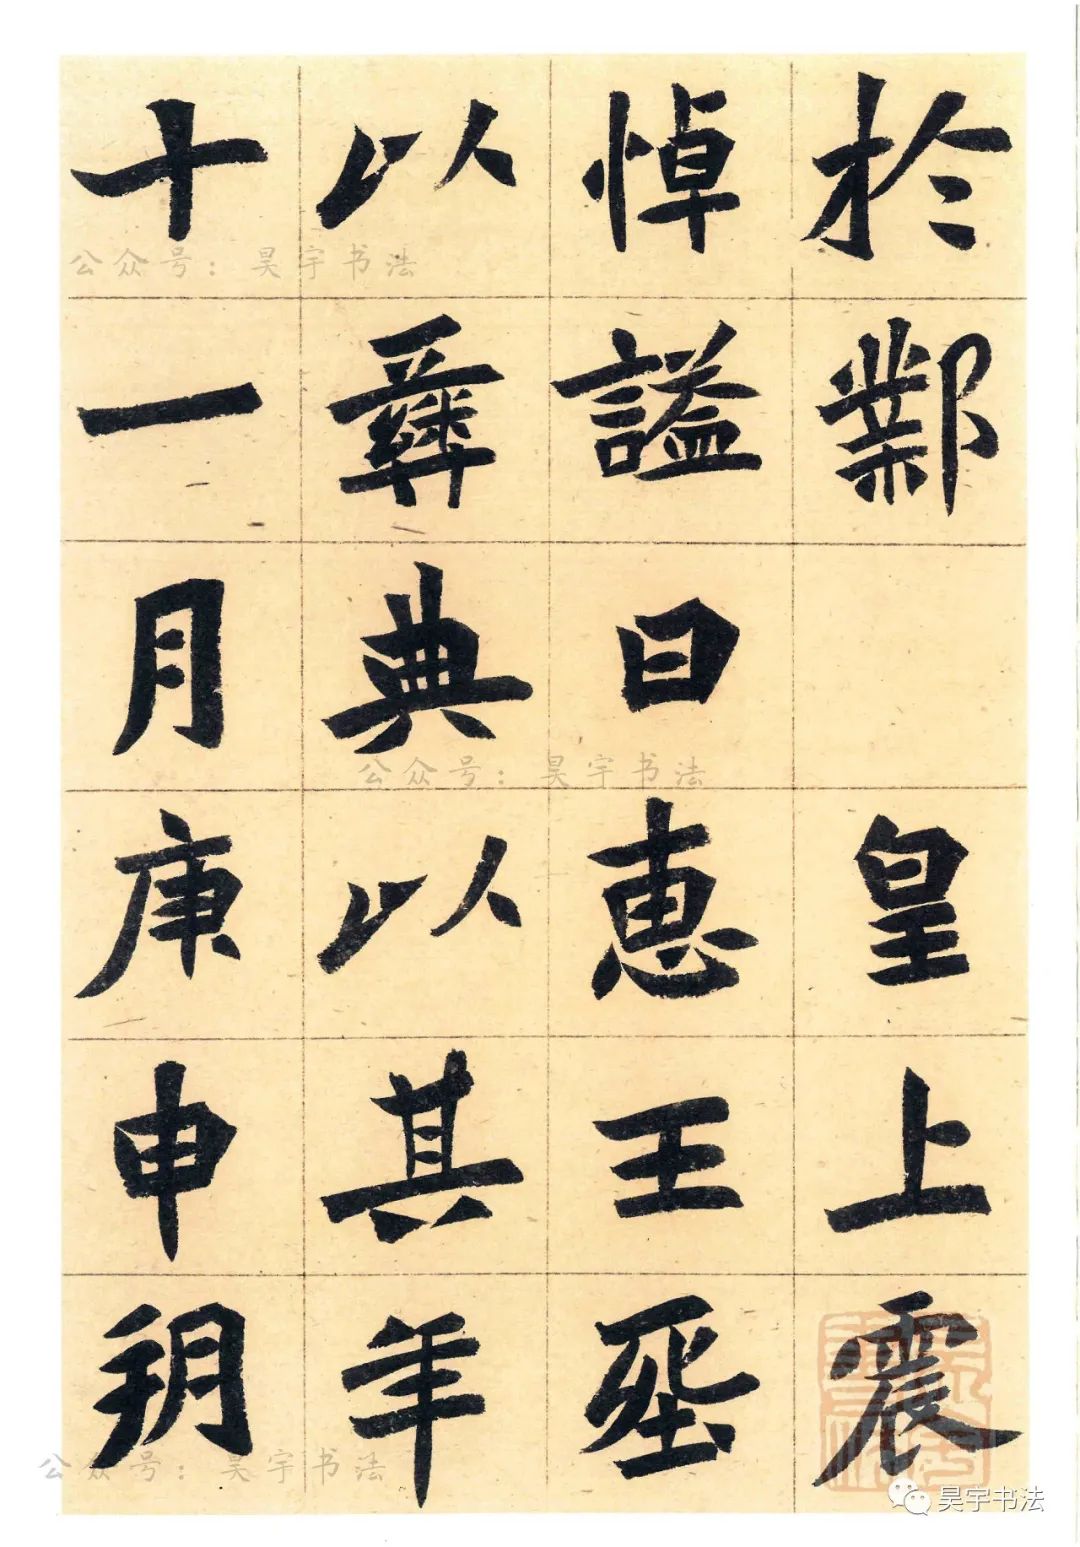 於鄴　皇上震
悼謚曰惠王葬
以彝典以其年
十一月庚申朔
公众号：昊宇书法
公众号：昊宇书法
公众号：昊宇书法
昊宇书法